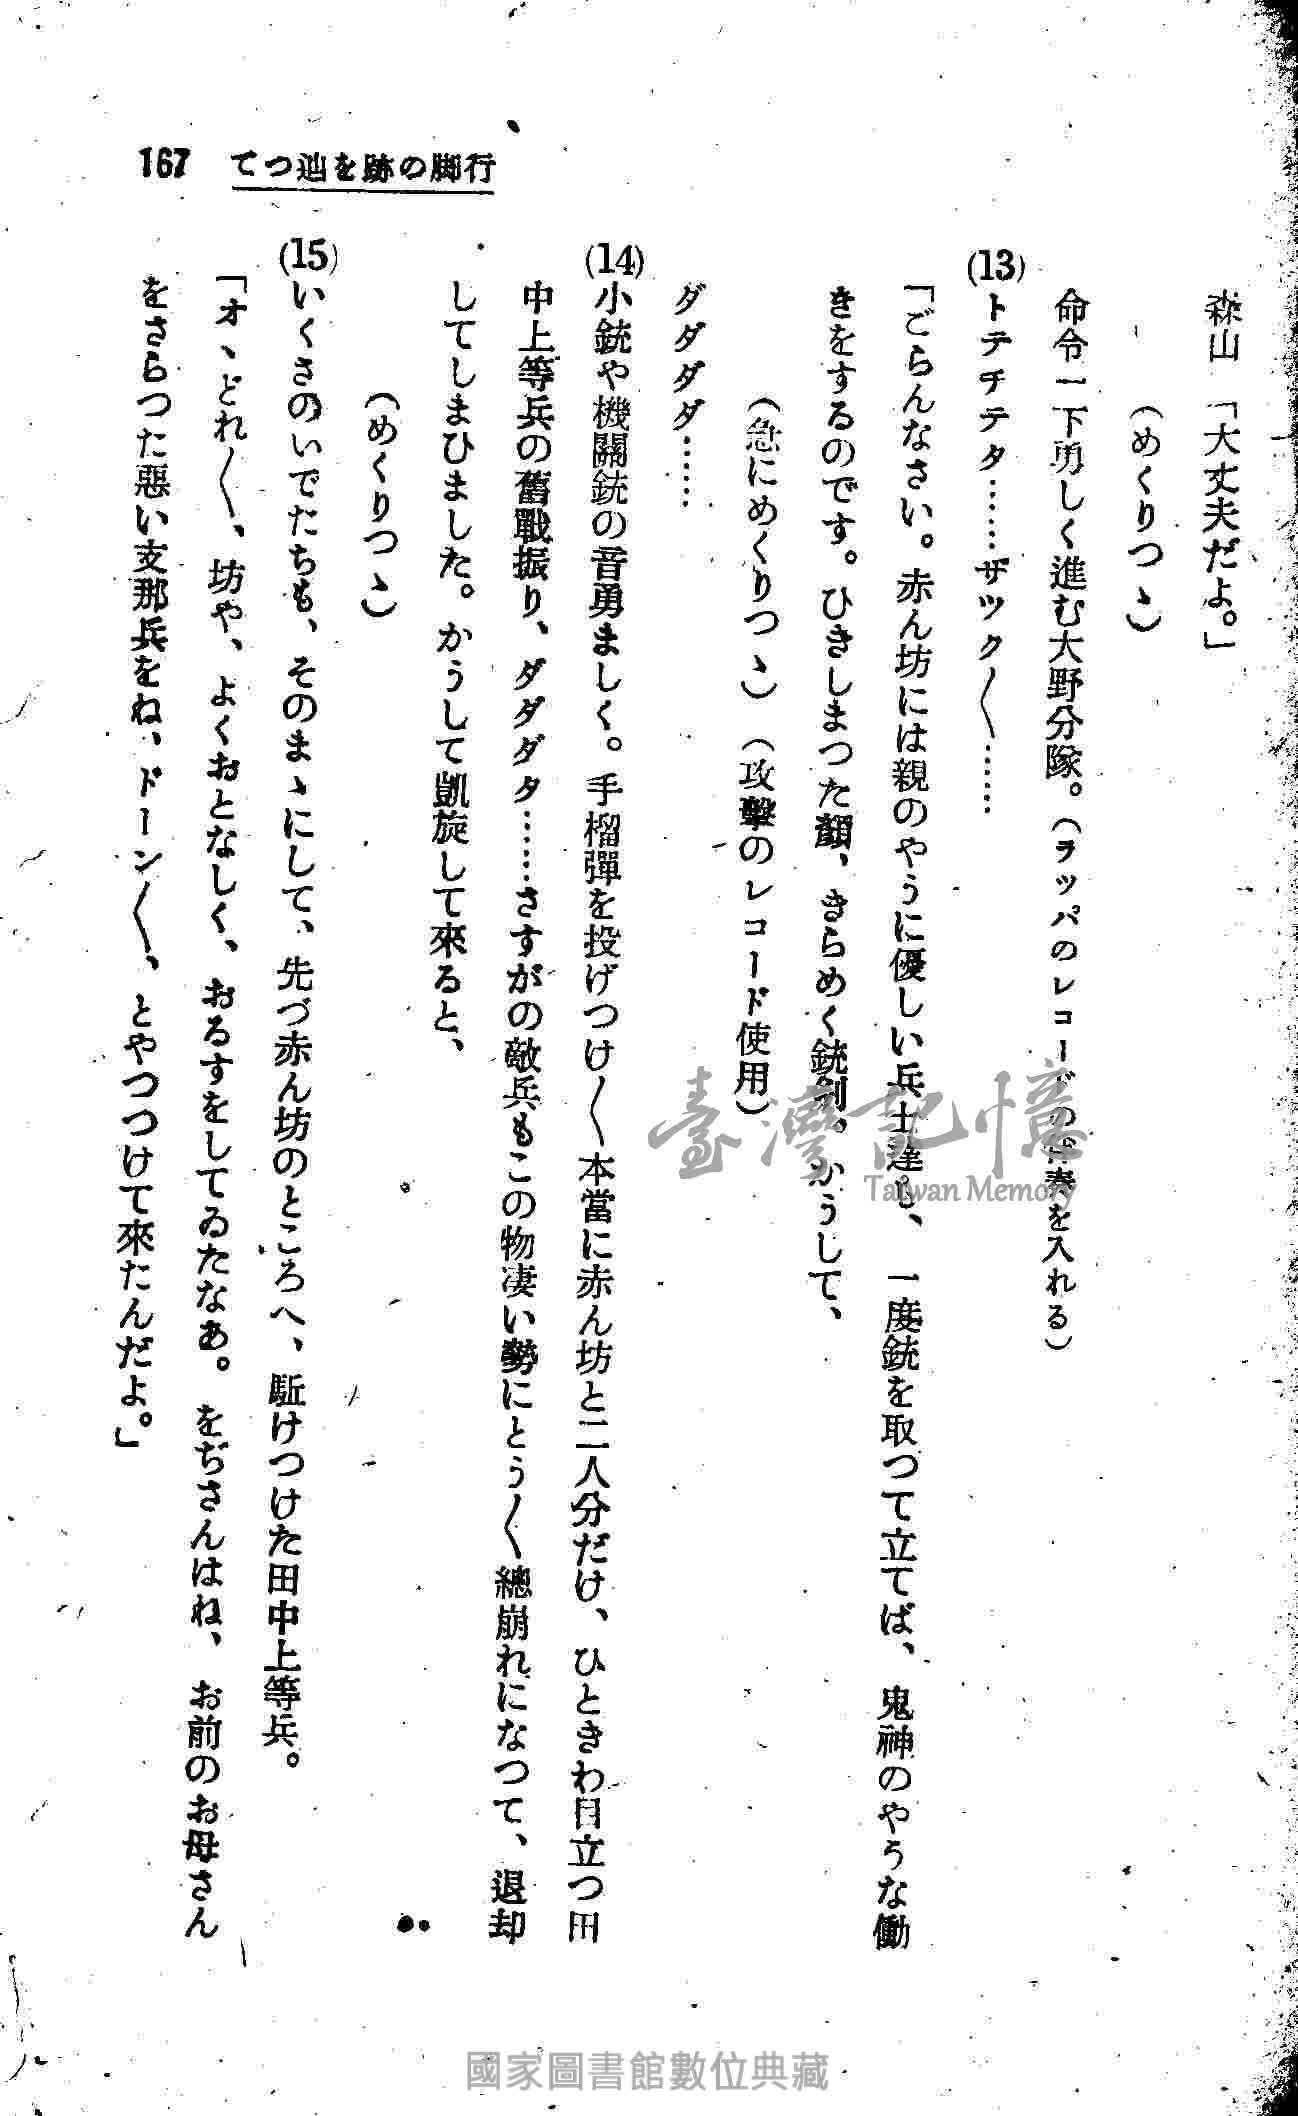 167 てつ辿を跡の脚行
森山「大丈夫だよ。」
（めくりつゝ）
命令一下勇しく進む大野分隊。（ラッパのレコードの伴奏を入れる）
(13) トテチテタ……ザツク〱……
「ごらんなさい。赤ん坊には親のやうに優しい兵士達も、一度銃を取つて立てば、鬼神のやうな働
きをするのです。ひきしまつた顔、きらめく銃剣。かうして、
（急にめくりつゝ）（攻擊のレコード使用）
ダダダダ……
(14) 小銃や機關銃の音勇ましく。手榴彈を投げつけ〱本當に赤ん坊と二人分だけ、ひときわ目立つ田
中上等兵の奮戰振り、ダダダタ……さすがの敵兵もこの物凄い勢にとう〱總崩れになつて、退却
してしまひました。かうして凱旋して來ると、
（めくりつゝ）
(15) いくさのいでたちも、そのまゝにして、先づ赤ん坊のところへ、駈けつけた田中上等兵。
「オヽどれ〱、坊や、よくおとなしく、おるすをしてゐたなあ。をぢさんはね、お前のお母さん
をさらつた惡い支那兵をね、ドーン〱、とやつつけて來たんだよ。」
臺灣記憶
Taiwan Memory
國家圖書館數位典藏